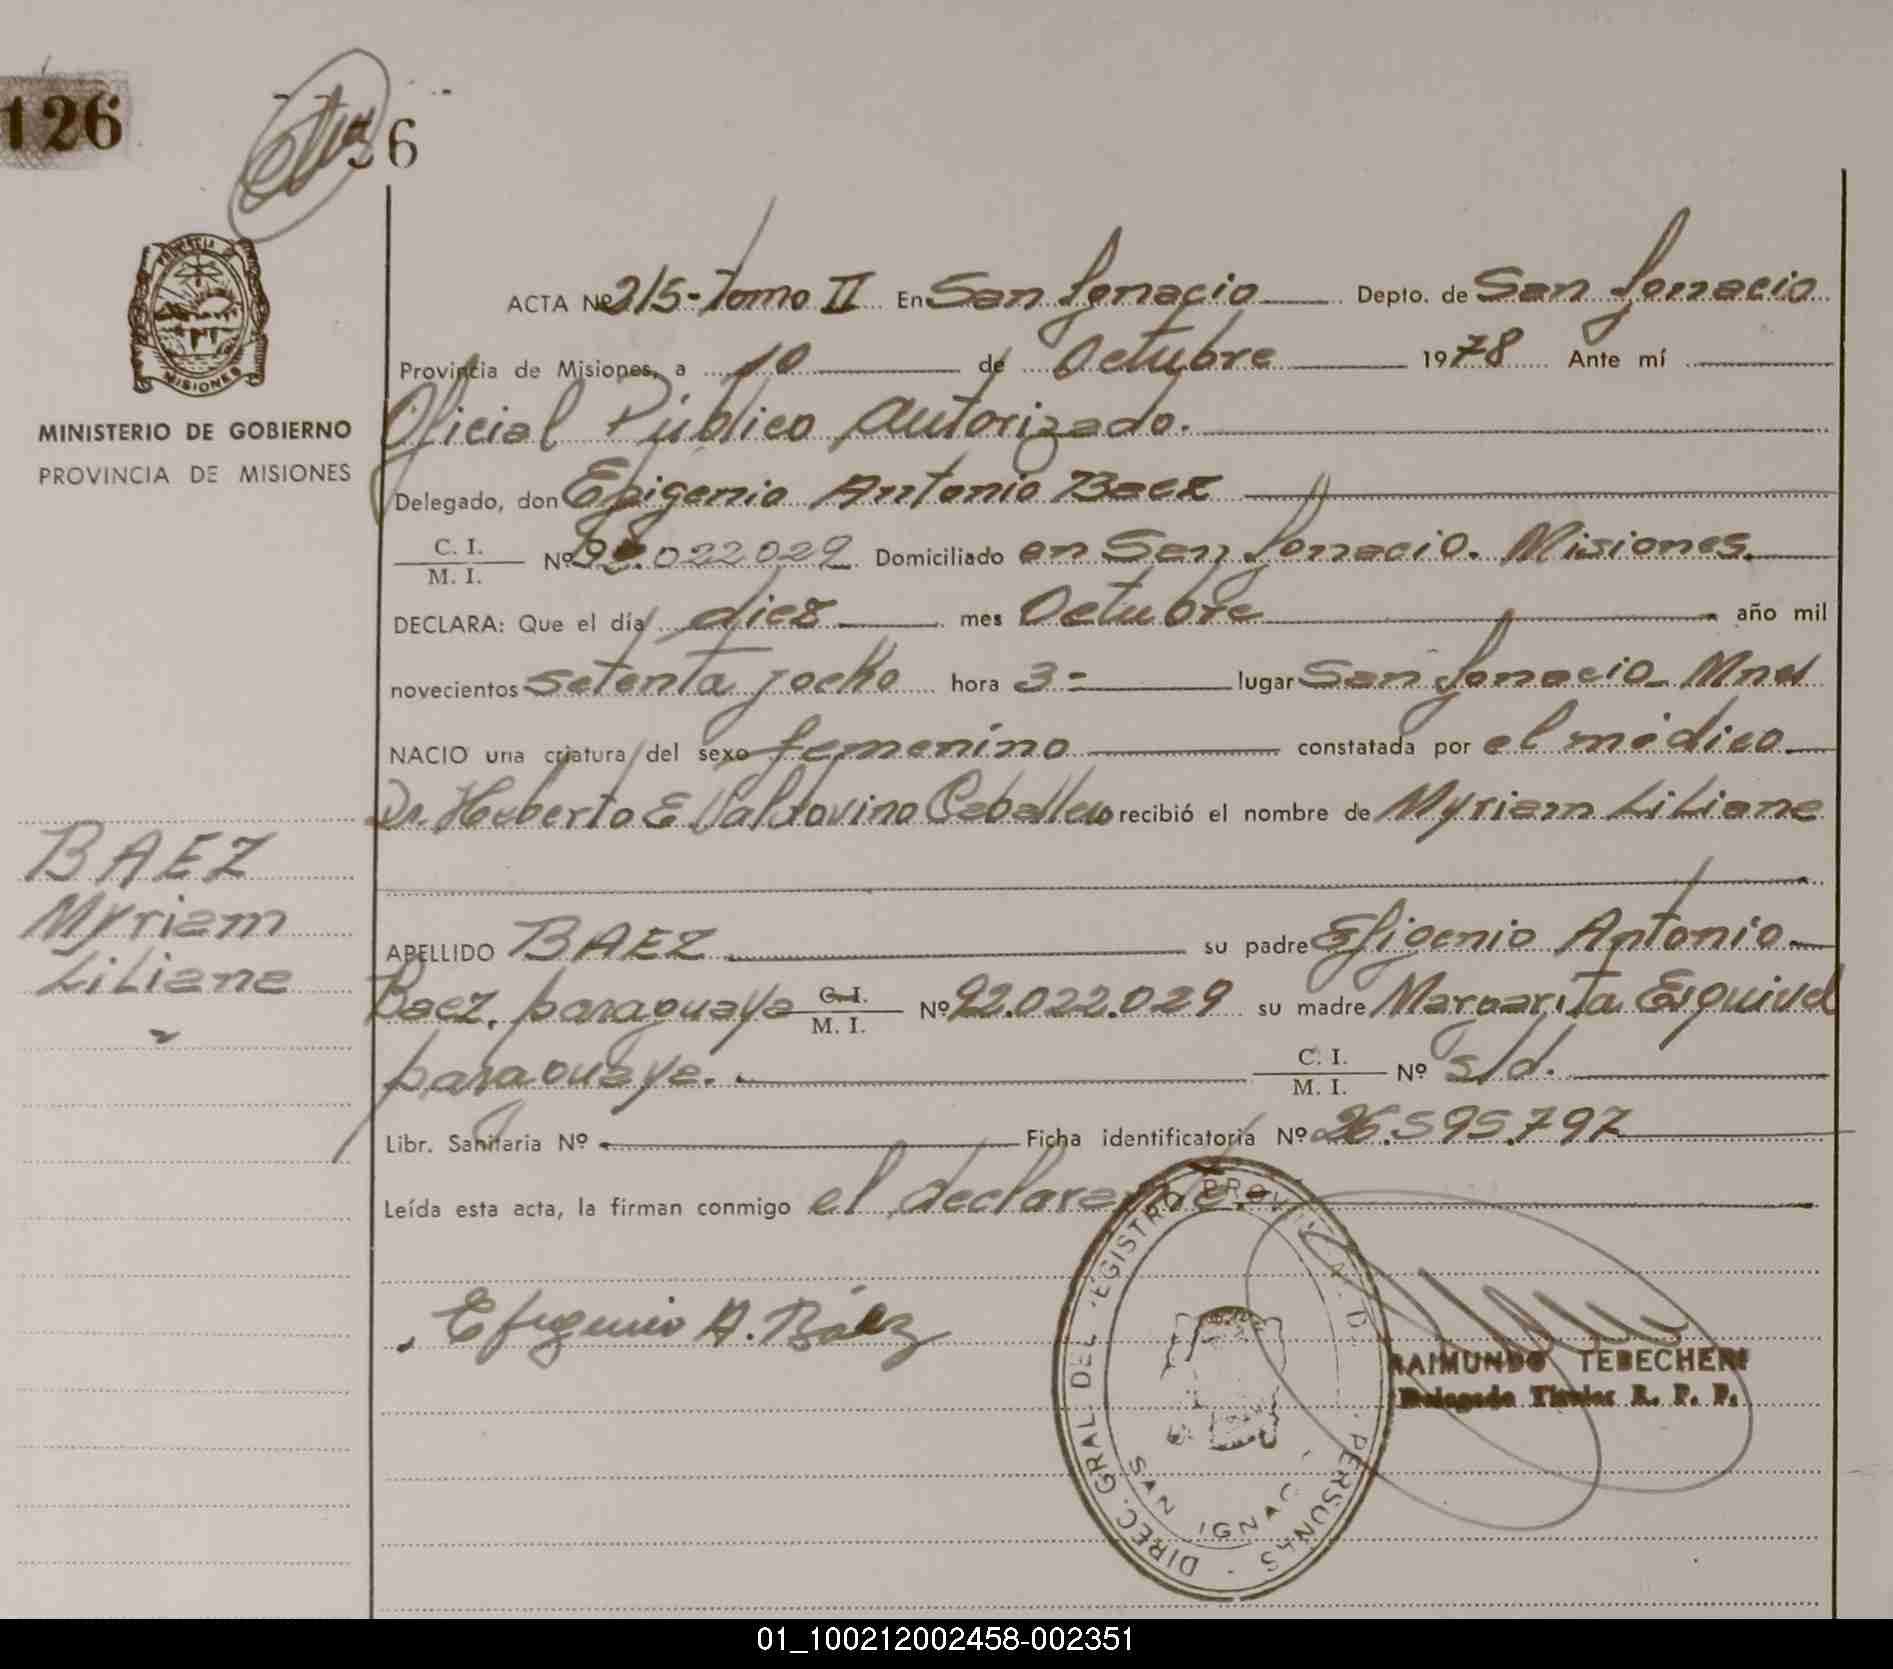 126
6
PROVINCIA DE
MISIONES
MINISTERIO DE GOBIERNO
PROVINCIA DE MISIONES
ACTA Nº 215-Tomo II En San Ignacio Depto. de San Ignacio
Provincia de Misiones, a 10 de Octubre 1978 Ante mí
Oficial Público Autorizado.
Delegado, don Efigenio Antonio Baez
C. I.
M. I. Nº 92.022029 Domiciliado en San Ignacio. Misiones.
DECLARA: Que el día diez mes Octubre año mil
novecientos setenta y ocho hora 3- lugar San Ignacio- Mnes
NACIO una criatura del sexo femenino constatada por el médico
Dr. Heberto E Valdovino Caballero recibió el nombre de Myriam Liliana
BAEZ
Myriam
Liliana
APELLIDO BAEZ su padre Efigenio Antonio
Baez. paraguaya C. I.
M. I. Nº 92.022.029 su madre Margarita Esquivel
paraguaya. C. I.
M. I. Nº s/d.
Libr. Sanitaria Nº Ficha identificatoria Nº 26.595.797
Leída esta acta, la firman conmigo el declarante.-
Efigenio A. Báez
DIREC. GRAL. DEL REGISTRO PROVINCIAL D PERSONAS
SAN IGNACI
RAIMUNDO TEBECHERI
Delegado Titular R. P. P.
01_100212002458-002351